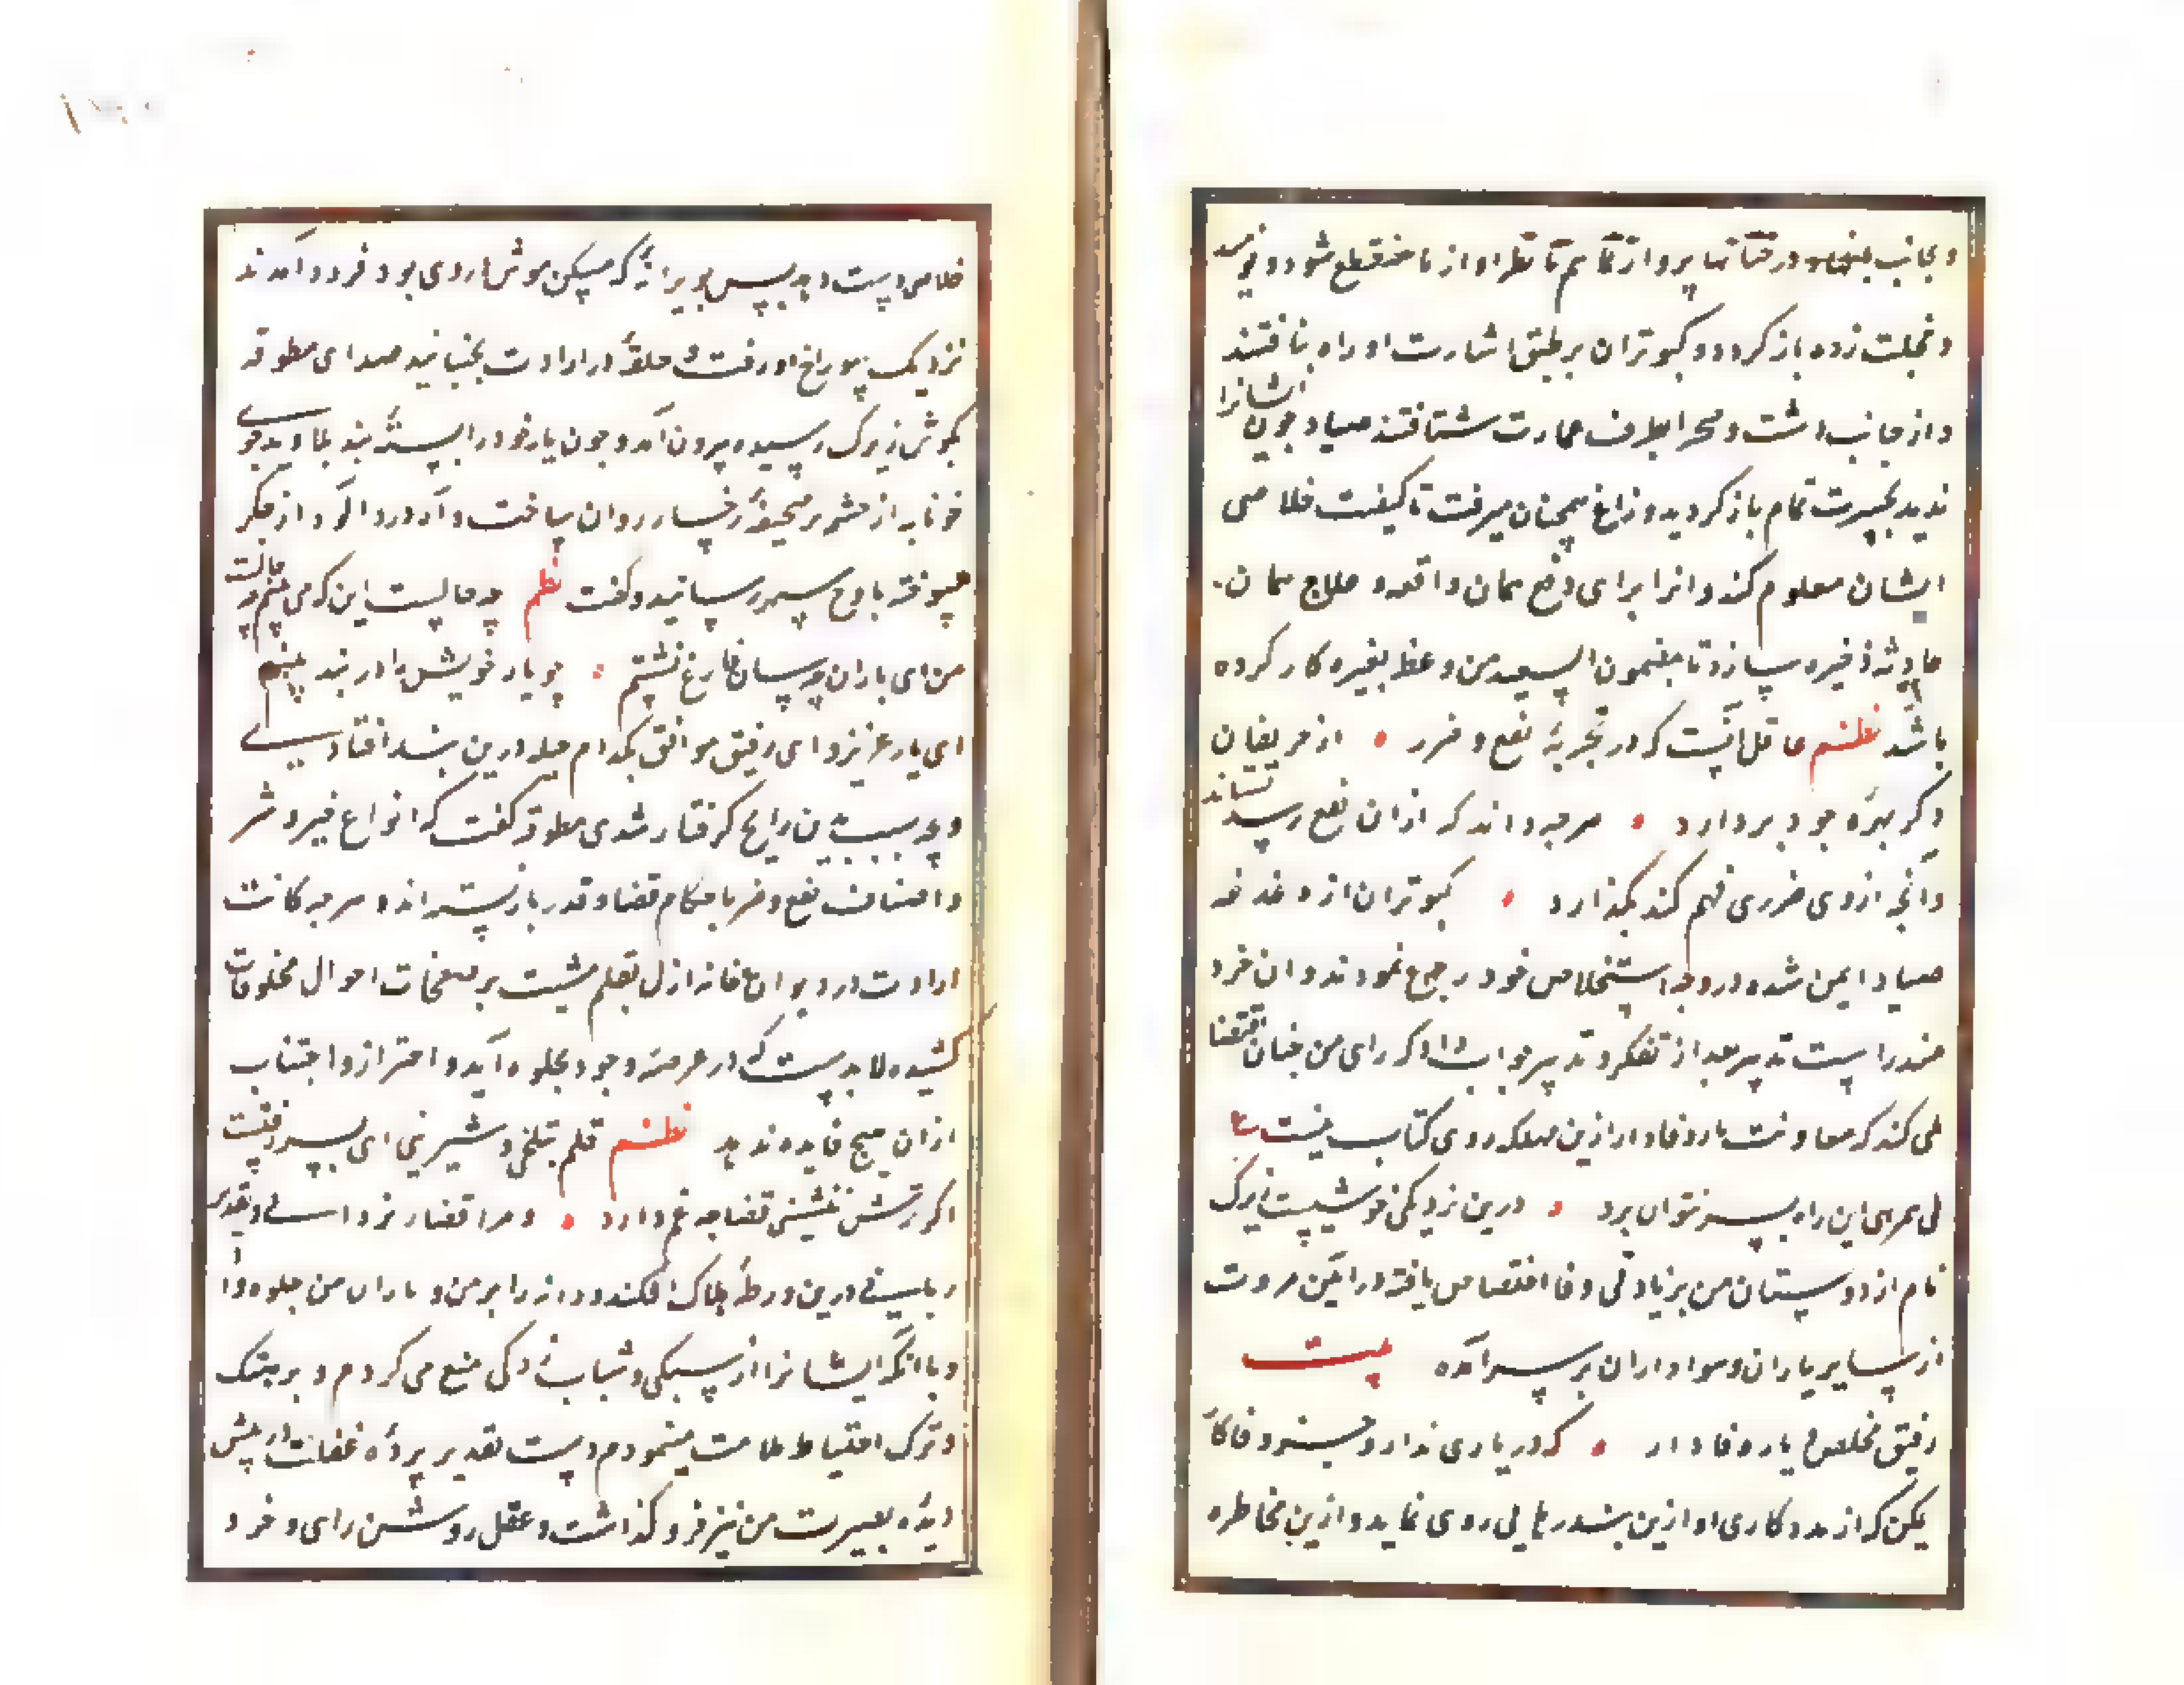 و بجانب درختان پرواز کنیم تا نظر او از ما منقطع شود و نومید
و خجلت زده باز گردد و کبوتران بر طبق اشارت او راه بتافتند
و از جانب دشت و صحرا بطرف عمارت شتافتند صیاد چون ایشانرا
ندید بحیرت تمام باز گردید و زاغ همچنان میرفت تا کیفیت خلاصی
ایشان معلوم کند و انرا برای دفع همان واقعه و علاج همان
حادثه ذخیره سازد تا بمضمون السعید من وعظ بغیره کار کرده
باشد نظم عاقل آنست که در تجربهٔ نفع و ضرر از حریفان
دگر بهره خود بردارد هرچه داند که ازان نفع رسد نستاند
وآنچه ازوی ضرری فهم کند بگذارد کبوتران از دغدغه
صیاد ایمن شده در وجه استخلاص خود رجوع نمودند و ان خرد
مند راست تدبیر بعد از تفکر و تدبیر جواب داد که رای من چنان اقتضا
می کند که معاونت یار وفادار ازین مهلکه روی
بی همرهی این راه بسر نتوان برد درین نزدیکی موشیست زیرک
نام از دوستان من بزیادتی وفا اختصاص یافته و در آئین مروت
از سایر یاران و هواداران بر سر آمده بیت
رفیق مخلص و یار وفادار که در یاری ندارد جز وفا کار
یمکن که از مددکاری او ازین بند رهایی روی نماید و ازین مخاطره
خلاصی دست دهد پس بویرانهٔ که مسکن موش دروی بود فرود آمدند
نزدیک سوراخ او رفت و حلقهٔ در ارادت بجنبانید صدای مطوقه
بگوش زیرک رسیده بیرون آمد و چون یار خود را بستهٔ بند بلا دید جوی
خونابه از چشم بر صحیفهٔ رخسار روان ساخت و آه درد آلود از جگر
سوخته باوج سپهر رسانید و گفت نظم چه حالیست این که می بینم چه حالت
من ای یاران چه سان فارغ نشینم چو یار خویش را در بند بینم
ای یار عزیز و ای رفیق موافق بکدام حیله درین بند افتادی
و بچه سبب بدین رنج گرفتار شدی مطوقه گفت که انواع خیر و شر
و اصناف نفع و ضر باحکام قضا و قدر باز بسته اند و هرچه کاتب
ارادت در دیوان خانه ازل بقلم مشیت بر صفحات احوال مخلوقات
کشیده لابدست که در عرصه وجود بجلوه آید و احتراز و اجتناب
ازان هیچ فایده ندهد نظم قلم بتلخی و شیرینی ای پسر رفتست
اگر ترش ننشینی قضا چه غم دارد و مرا قضاء و تقدیر
ربانی درین ورطهٔ هلاک افکند و دانه را بر من و یاران من جلوه داد
و با آنکه ایشانرا از سبکی و شتاب زدگی منع می کردم و بر هتک
و ترک احتیاط ملامت مینمودم دست تقدیر پردهٔ غفلت در پیش
دیدهٔ بصیرت من نیز فرو گذاشت و عقل روشن رای و خرد